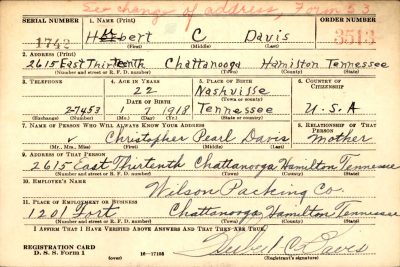 See change of address, Form 53
SERIAL NUMBER 1. NAME (Print) ORDER NUMBER
1742 Herbert C Davis 3513
(First) (Middle) (Last)
2. ADDRESS (Print)
2615 East Thirteenth Chattanooga Hamilton Tennessee
(Number and street or R. F. D. number) (Town) (County) (State)
3. TELEPHONE 4. AGE IN YEARS 5. PLACE OF BIRTH 6. COUNTRY OF CITIZENSHIP
22 Nashville
DATE OF BIRTH (Town or county)
2-7453 1 7 1918 Tennessee U.S.A
(Exchange) (Number) (Mo.) (Day) (Yr.) (State or country)
7. NAME OF PERSON WHO WILL ALWAYS KNOW YOUR ADDRESS 8. RELATIONSHIP OF THAT PERSON
Christopher Pearl Davis Mother
(Mr., Mrs., Miss) (First) (Middle) (Last)
9. ADDRESS OF THAT PERSON
2615 East Thirtenth Chattanooga Hamilton Tennessee
(Number and street or R. F. D. number) (Town) (County) (State)
10. EMPLOYER'S NAME
Wilson Packing Co.
11. PLACE OF EMPLOYMENT OR BUSINESS
1201 Fort Chattanooga, Hamilton Tennessee
(Number and street or R. F. D. number) (Town) (County) (State)
I AFFIRM THAT I HAVE VERIFIED ABOVE ANSWERS AND THAT THEY ARE TRUE.
REGISTRATION CARD
D. S. S. Form 1 16—17105 Herbert C. Davis
(Registrant's signature)